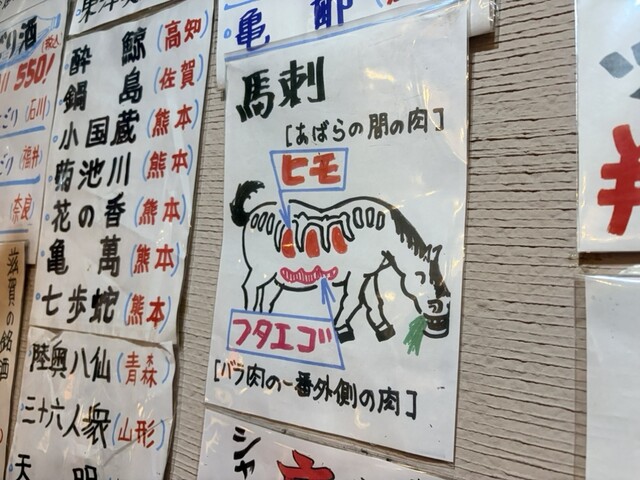 550!
(石川)
(福井)
(奈良)
滋賀の銘酒
酔鯨(高知)
鍋島(佐賀)
小国蔵(熊本)
菊池川(熊本)
花の香(熊本)
亀萬(熊本)
七歩蛇(熊本)
陸奥八仙(青森)
三十六人衆(山形)
天明
馬刺
[あばらの間の肉]
ヒモ
フタエゴ
[バラ肉の一番外側の肉]
シャ